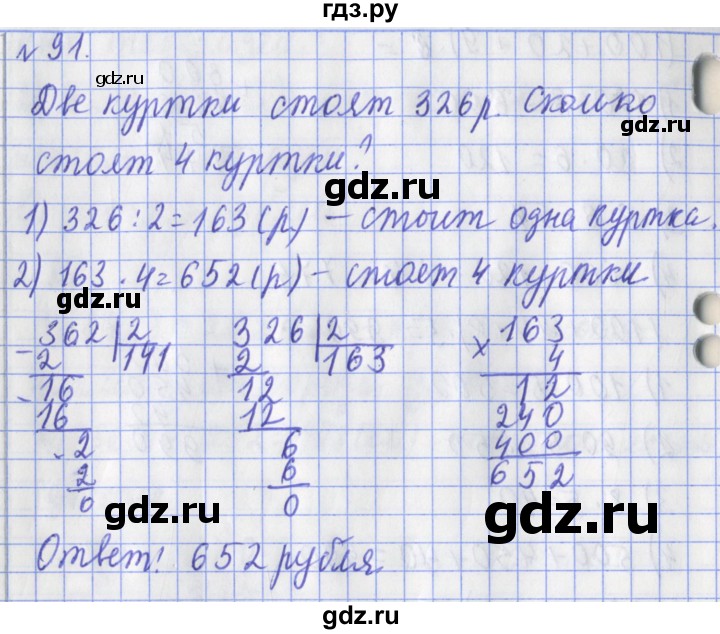 гдз.ру
№ 91.
gdz.ru
Две куртки стоят 326 р. Сколько
gdz.ru
стоят 4 куртки?
gdz.ru
1) 326 : 2 = 163 (р) – стоит одна куртка.
2) 163 · 4 = 652 (р) – стоят 4 куртки
gdz.ru
gdz.ru
362 | 2 326 | 2 × 163
– 2 | 141 2 | 163 4
– 16 12 12
16 12 240
- 2 6 400
2 6 652
0 0
gdz.ru
gdz.ru
gdz.ru
Ответ! 652 рубля
gdz.ru